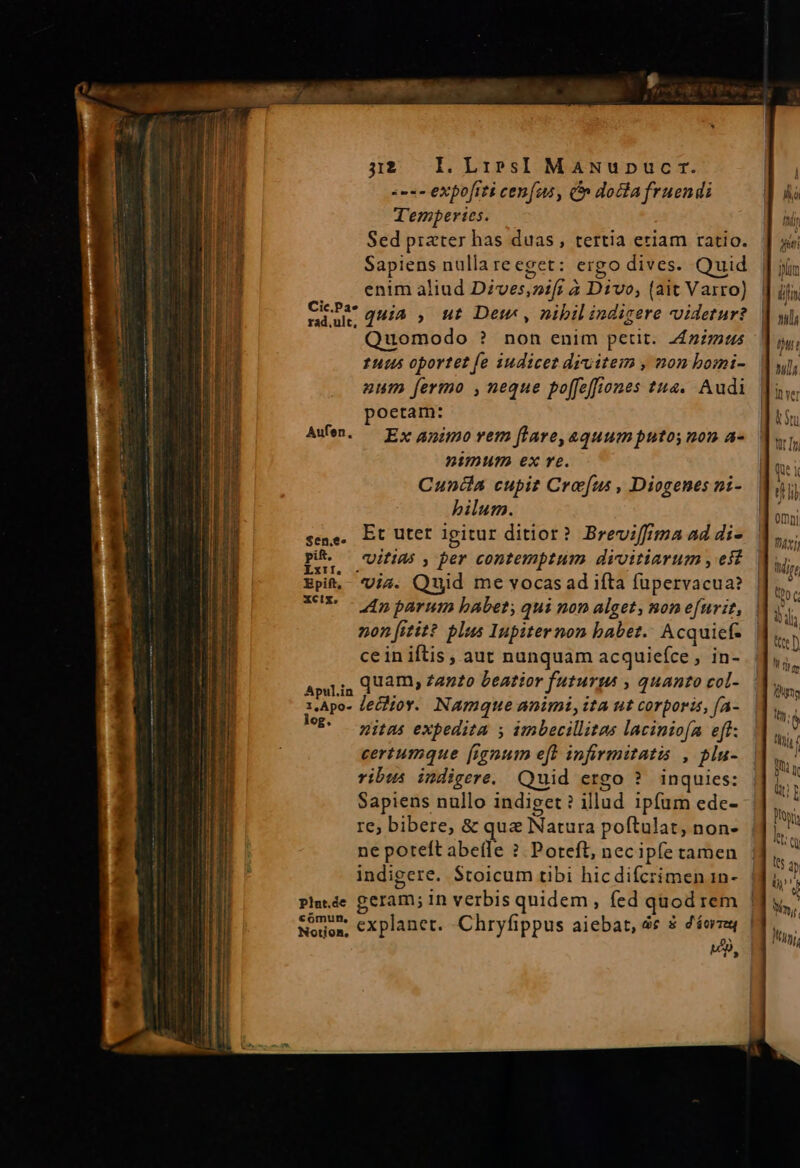 312 I. LIPSI MANUDUCT.
---- expoſiti cenſus, & docta fruendi
Temperies.
Sed præter has duas, tertia etiam ratio.
Sapiens nulla re eget: ergo dives. Quid
enim aliud Dives, niſi à Divo, (ait Varro)
Cic. Parad. ult.
quia, ut Deus, nihil indigere videtur?
Quomodo? non enim petit. Animus
tuus oportet ſe iudicet divitem, non homi-
num ſermo, neque poſſeſſiones tuæ. Audi
poetam:
Auſon.
Ex animo rem ſtare, æquum puto; non a-
nimum ex re.
Cuncta cupit Crœſus, Diogenes ni-
hilum.
Sen. e-
piſt.
LXII.
Epiſt.
XCIX.
Et uter igitur ditior? Breviſſima ad di-
vitias, per contemptum divitiarum, eſt
via. Quid me vocas ad iſta ſupervacua?
An parum habet; qui non alget, non eſurit,
non ſitit? plus Iupiter non habet. Acquieſ-
ce in iſtis, aut nunquam acquieſce, in-
Apul. in
1. Apo-
log.
quam, tanto beatior futurus, quanto col-
lectior. Namque animi, ita ut corporis, ſa-
nitas expedita; imbecillitas lacinioſa eſt:
certumque ſignum eſt infirmitatis, plu-
ribus indigere. Quid ergo? inquies:
Sapiens nullo indiget? illud ipſum ede-
re, bibere, & quæ Natura poſtulat, non-
ne poteſt abeſſe? Poteſt, nec ipſe tamen
indigere. Stoicum tibi hic diſcrimen in-
Plut. de
cõmun.
Notion.
geram; in verbis quidem, ſed quod rem
explanet. Chryſippus aiebat,